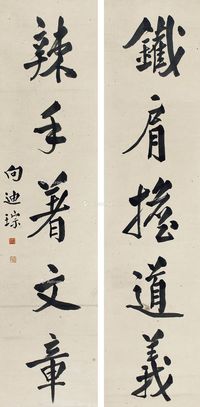 鐵肩擔道義
辣手著文章
向迪琮